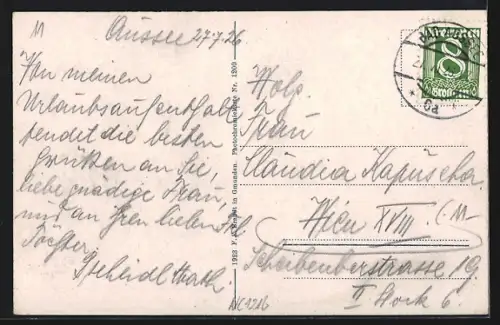 11
Aussee 27.7.26
Von meinen
Urlaubsaufenthalt
sendet die besten
Grüßen an Sie,
liebe gnädige Frau,
und an Ihren lieben
Töchter
1923 F. E. Brandt in Gmunden. Photochromiekarte Nr. 1209
Österreich
8
Groschen
Wolg.
Frau
Claudia Kapuscha
Wien XVIII.
Scheibenbergstrasse 19
II Stock 6.